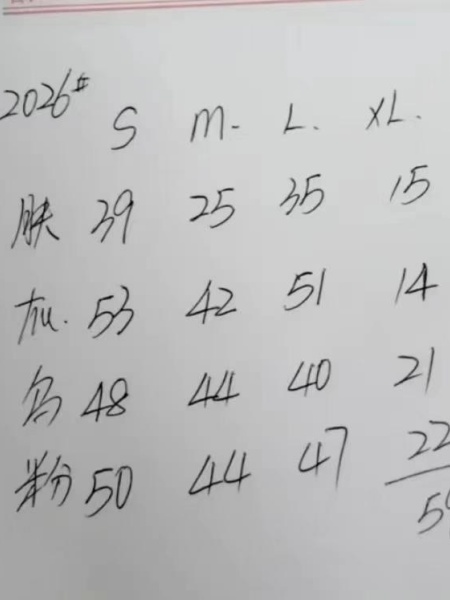 2026# S M. L. XL.
肤 39 25 35 15
53 42 51 14
48 44 40 21
粉 50 44 47 22